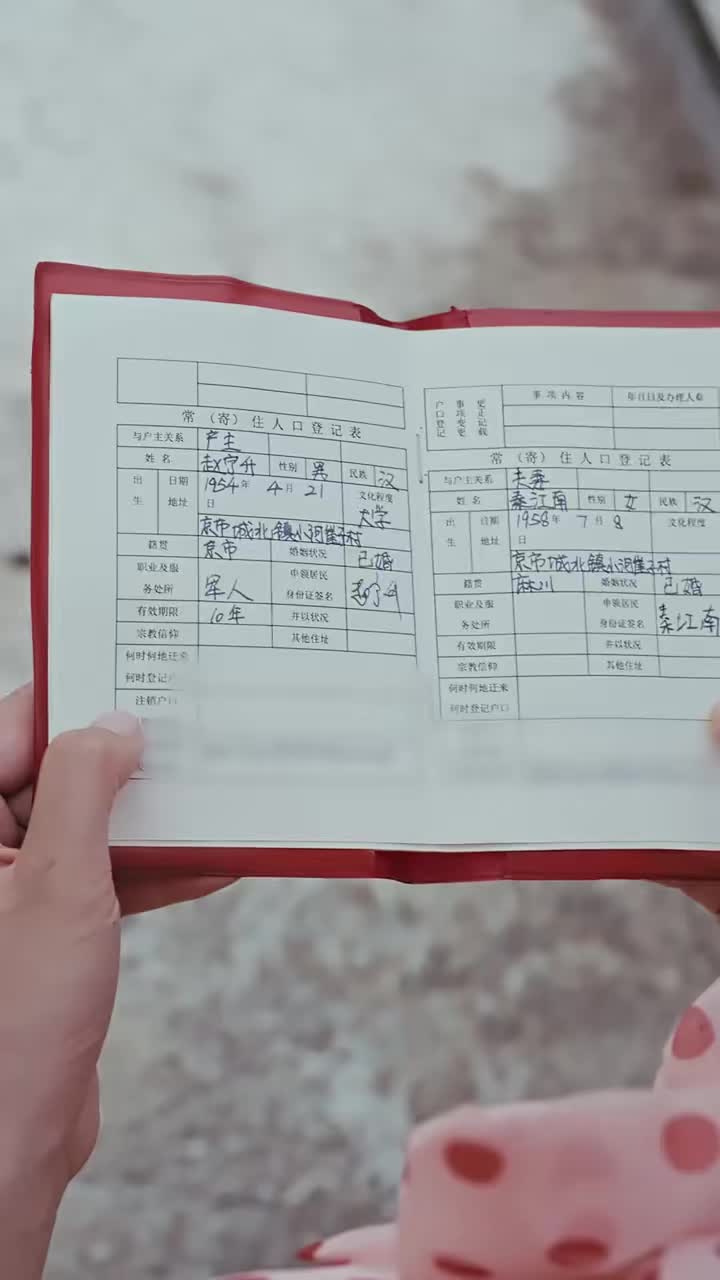 常（寄）住人口登记表
与户主关系 户主
姓名 赵宁升 性别 男 民族 汉
出生 日期 1954年4月21日 文化程度 大学
地址 京市城北镇小河崖子村
籍贯 京市 婚姻状况 已婚
职业及服务处所 军人 申领居民身份证签名
有效期限 10年 并以状况
宗教信仰 其他住址
何时何地迁来
何时登记户
注销户口
户口事项变更更正登记载 事项内容 年月日及办理人章
常（寄）住人口登记表
与户主关系 夫妻
姓名 秦江南 性别 女 民族 汉
出生 日期 1958年7月8日 文化程度
地址 京市城北镇小河崖子村
籍贯 麻川 婚姻状况 已婚
职业及服务处所 申领居民身份证签名 秦江南
有效期限 并以状况
宗教信仰 其他住址
何时何地迁来
何时登记户口